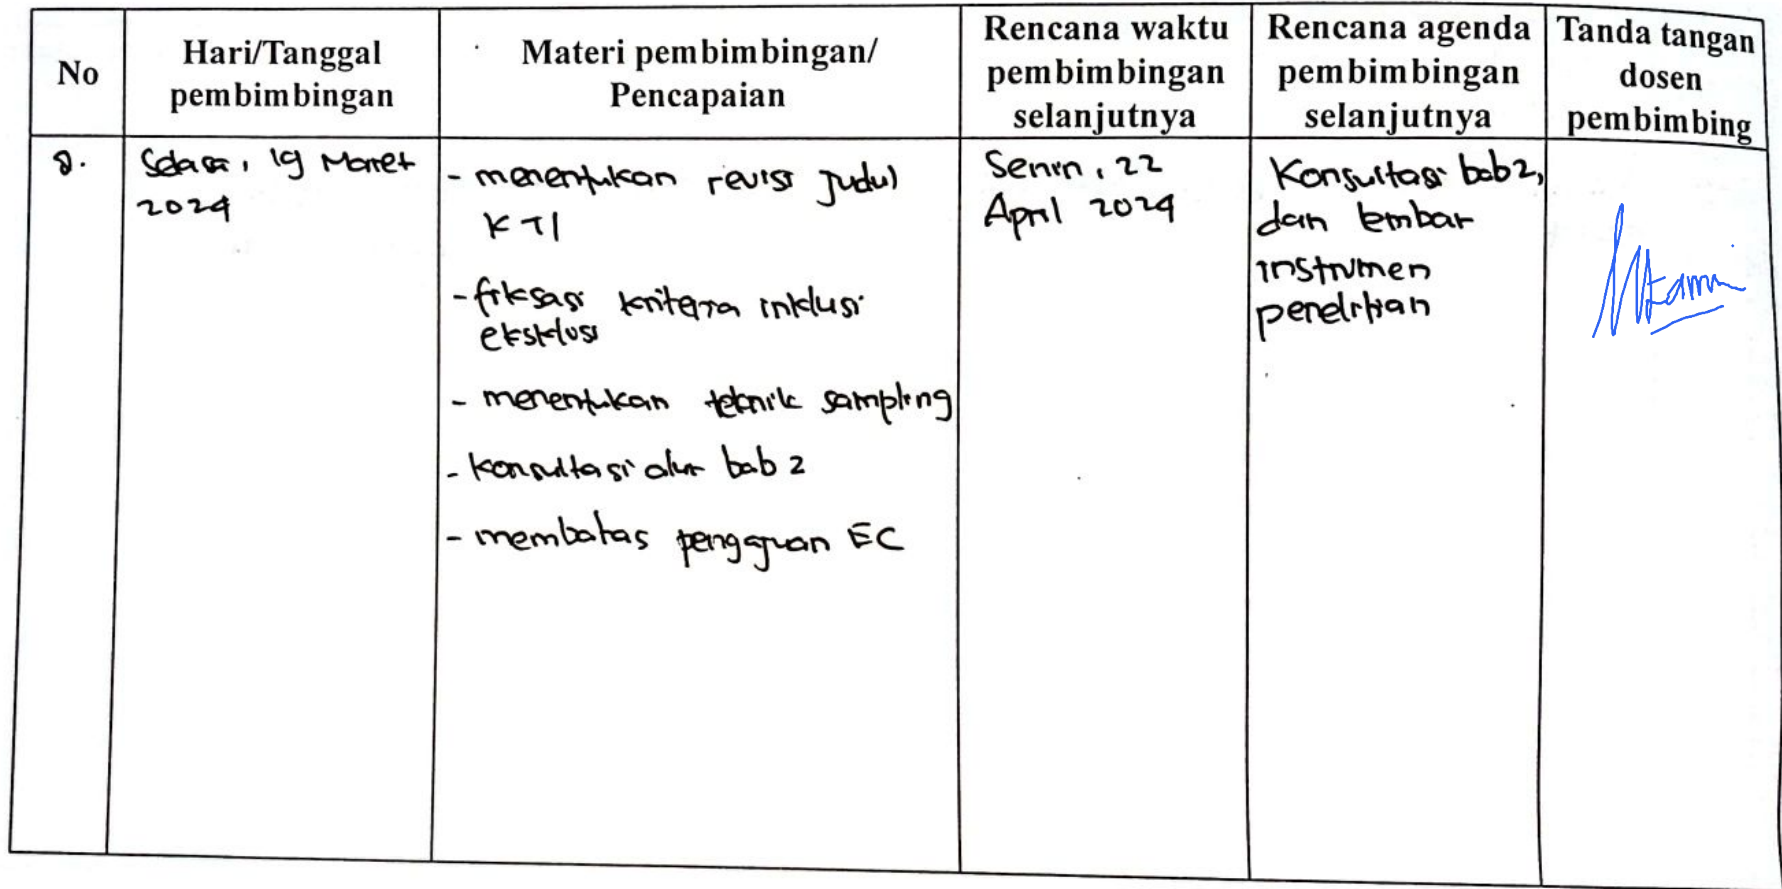 No
Hari/Tanggal
pembimbingan
Materi pembimbingan/
Pencapaian
Rencana waktu
pembimbingan
selanjutnya
Rencana agenda
pembimbingan
selanjutnya
Tanda tangan
dosen
pembimbing
8.
Selasa, 19 Maret
2024
- menentukan revisi judul
KTI
- fiksasi kriteria inklusi
eksklusi
- menentukan teknik sampling
- konsultasi alur bab 2
- membahas pengajuan EC
Senin, 22
April 2024
Konsultasi bab 2,
dan lembar
instrumen
penelitian